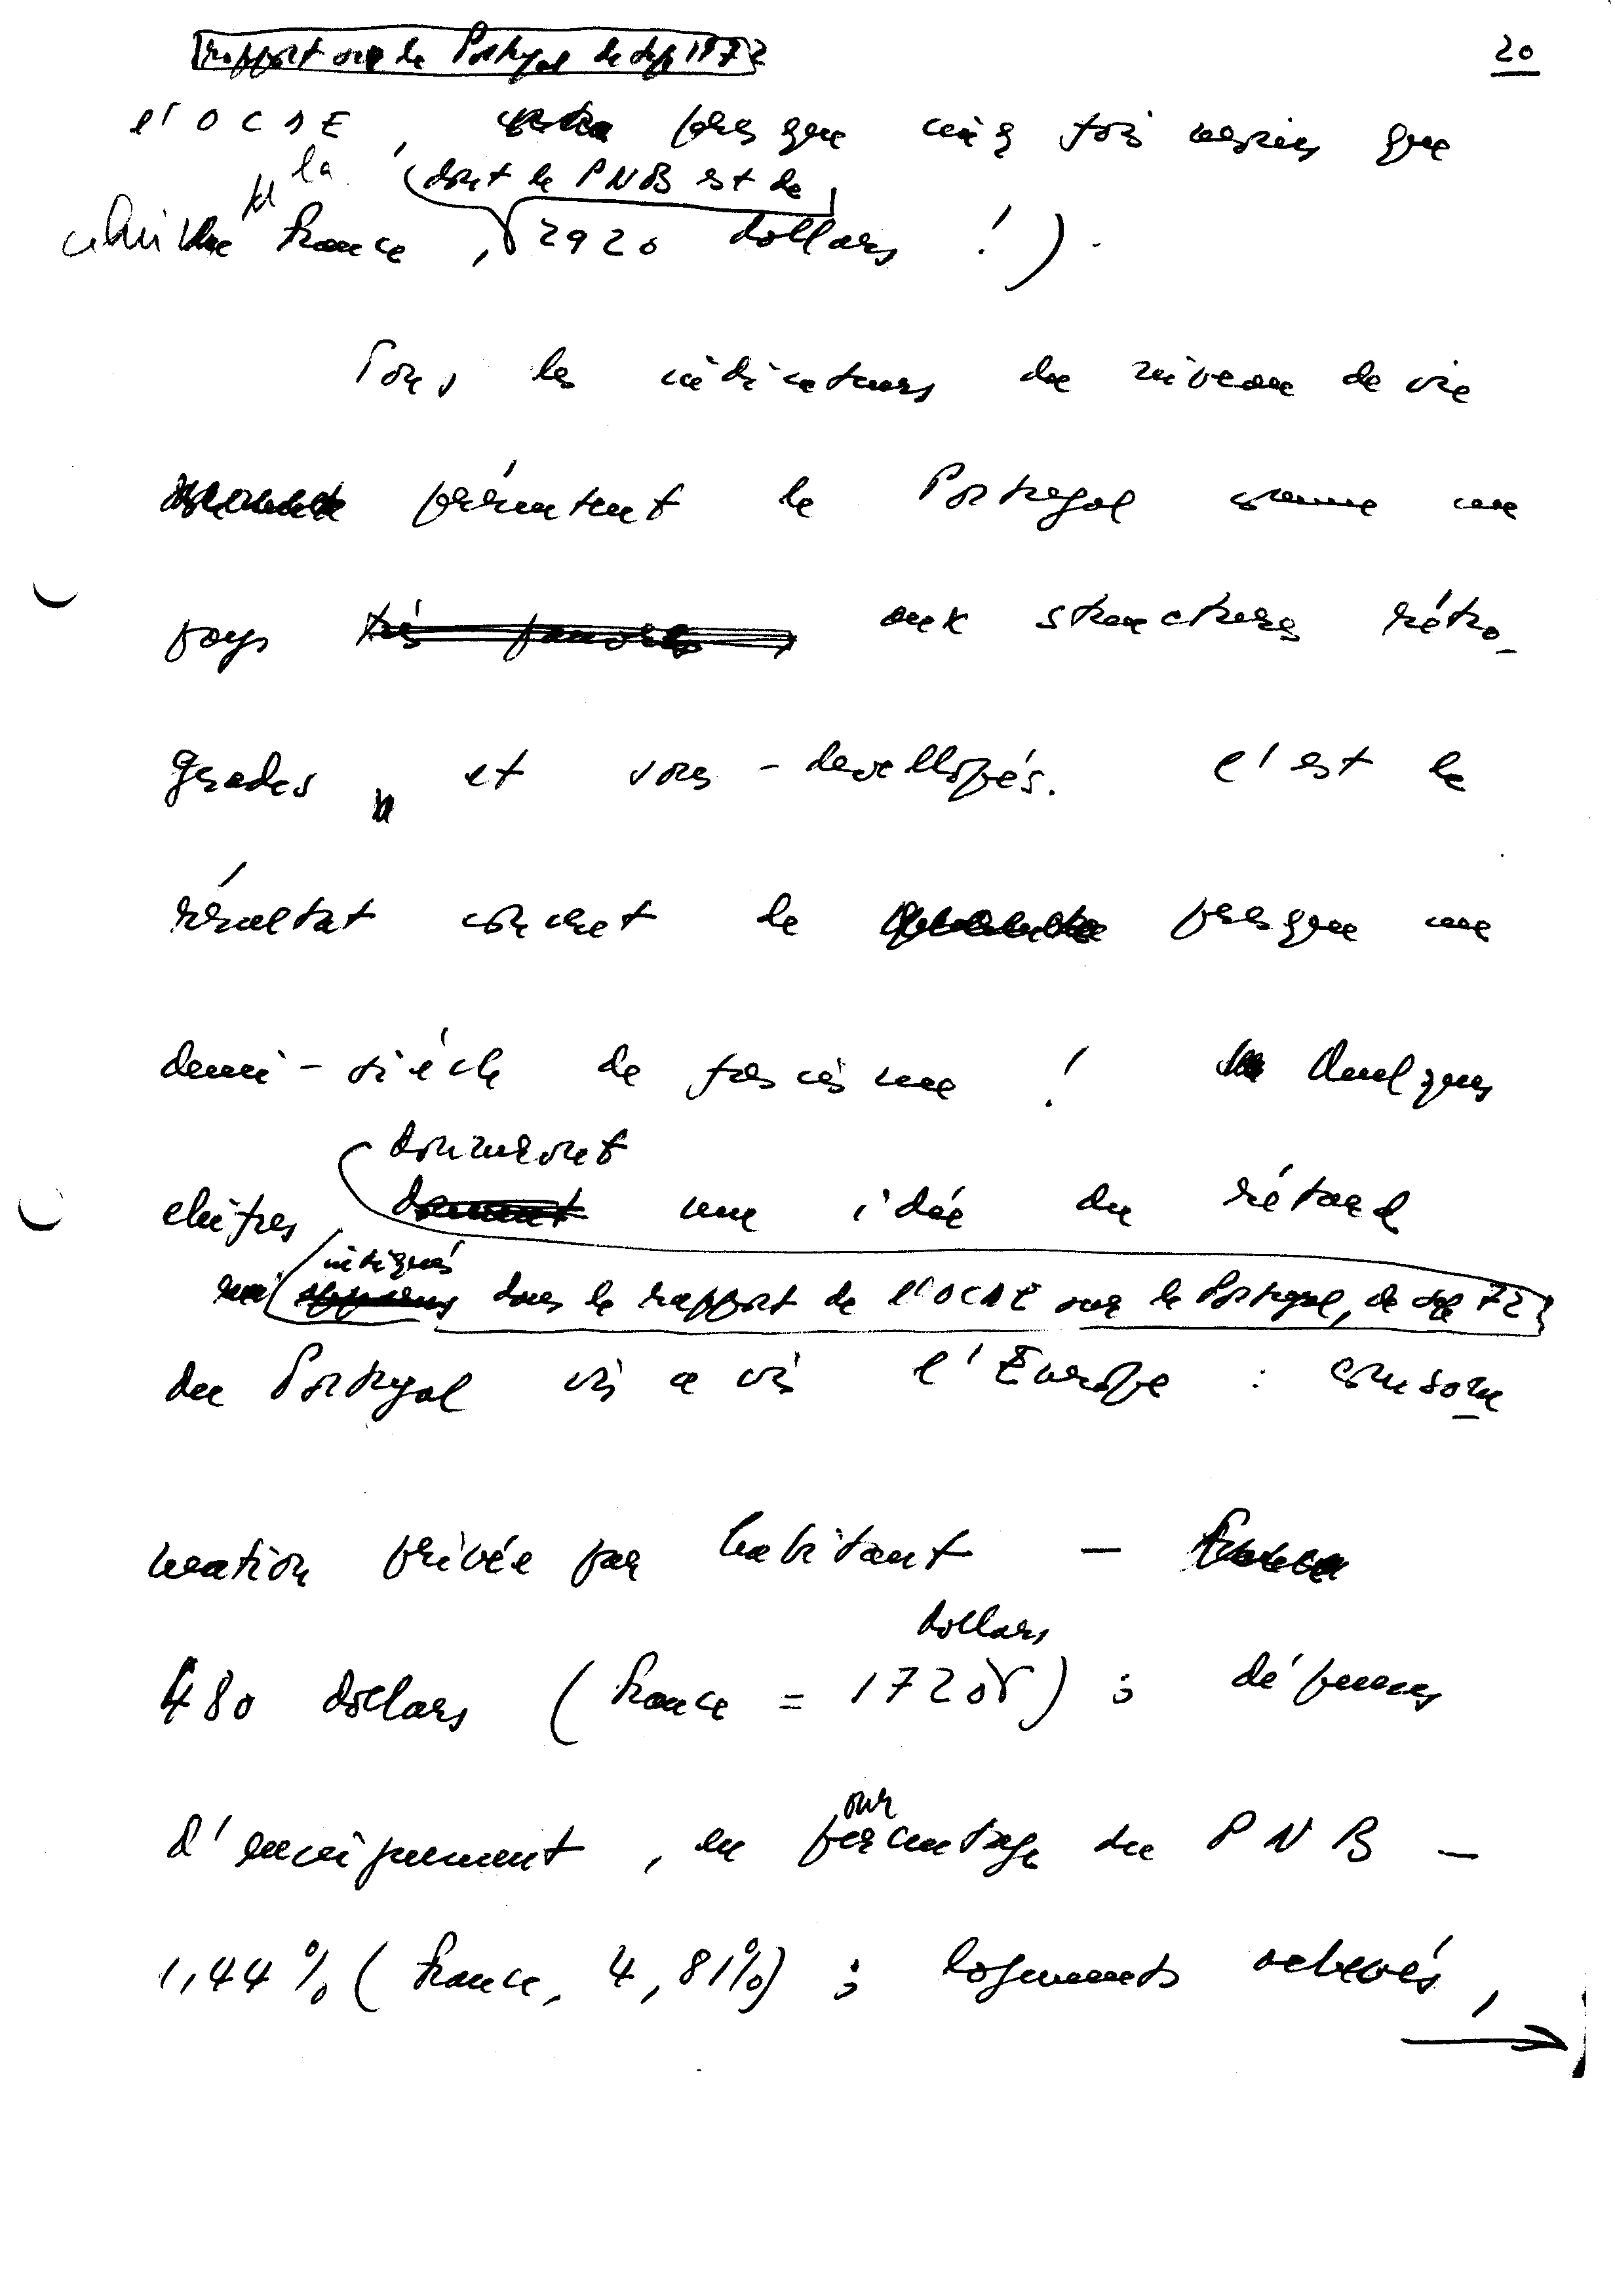 rapport sur le Portugal de sep 1972
20
l'OCDE, presque cinq fois moins que
la (dont le PNB est de
celui de France, 2920 dollars !).
Tous les indicateurs du niveau de vie
présentent le Portugal comme un
pays très pauvre, aux structures rétro-
grades et sous-devellopés. C'est le
résultat concret de presque un
demi-siécle de fascisme ! Quelques
donneront
chifres donnent une idée du rétard
indiqués
dans le rapport de l'OCDE sur le Portugal, de sep 72
du Portugal vis a vis l'Europe : consom
mation privée par habitant —
dollars
480 dollars (France = 1720) ; dépenses
our
d'enseignement, en percentage du PNB —
1,44% (France, 4,81%) ; logements achevés,